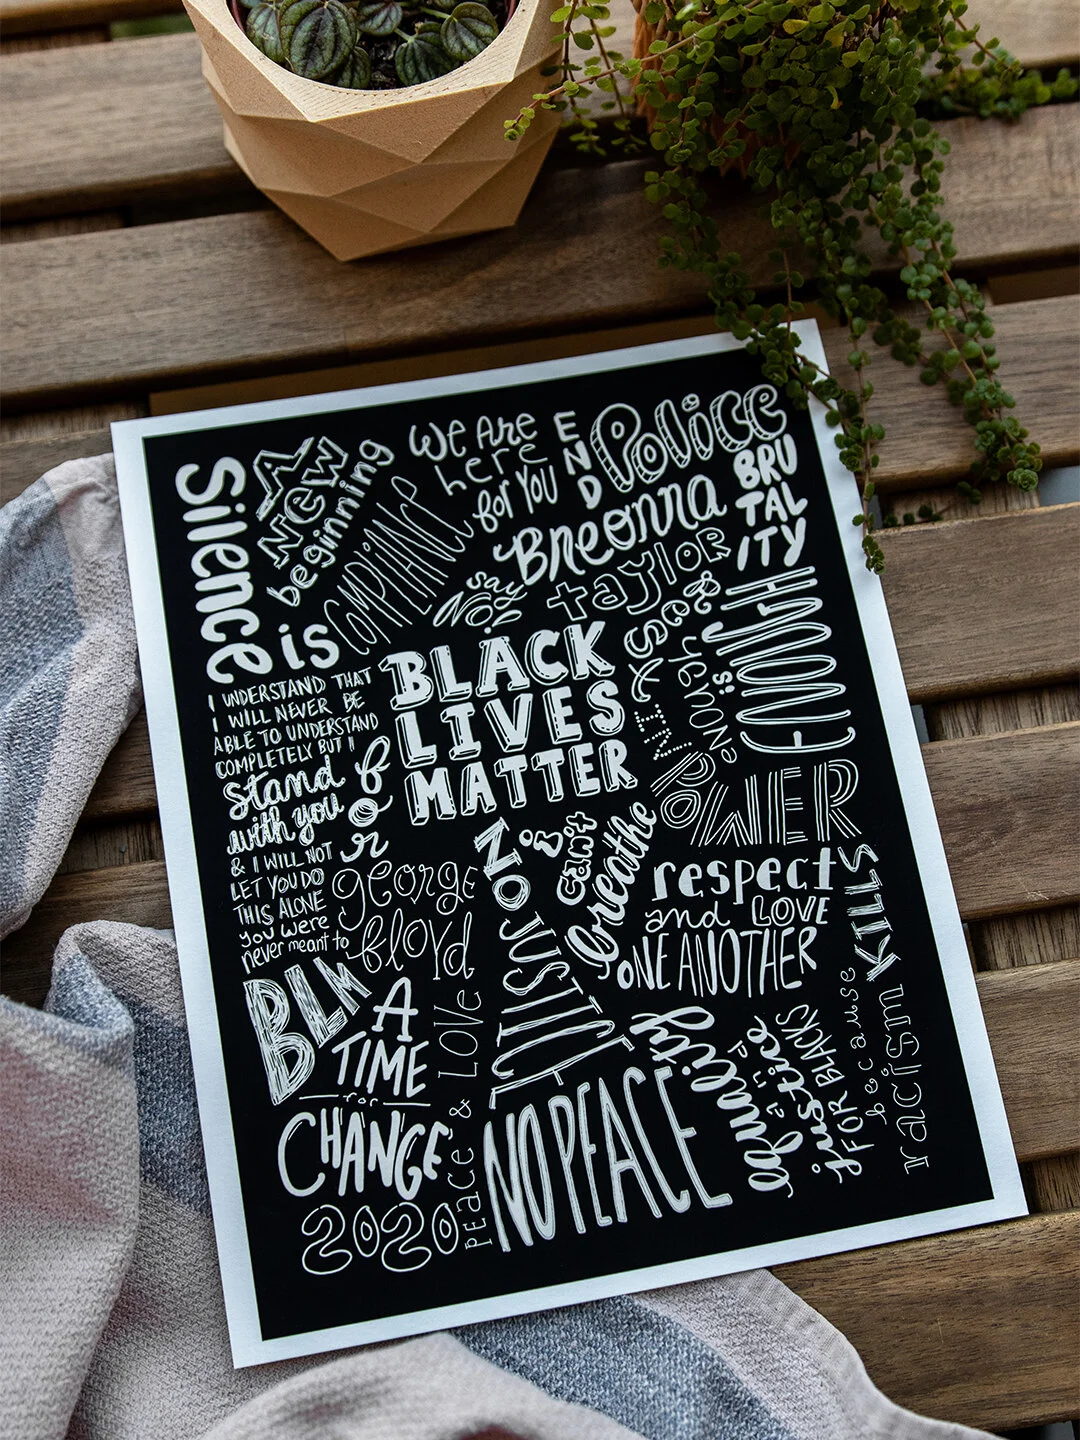 Silence
is
COMPLIANCE
A
NEW
beginning
we Are
here
for YOU
END
Police
BRU
TAL
ITY
Breonna
taylor
say
No!
BLACK
LIVES
MATTER
enough
is
ENOUGH
I UNDERSTAND THAT
I WILL NEVER BE
ABLE TO UNDERSTAND
COMPLETELY BUT I
stand
with you
& I WILL NOT
LET YOU DO
THIS ALONE
you were
never meant to
for
george
floyd
i
can't
breathe
POWER
respect
and LOVE
ONE ANOTHER
NO JUSTICE
NO PEACE
BLM
A
TIME
for
CHANGE
2020
peace & LOVE
equality
and
justice
FOR BLACKS
because
racism
KILLS